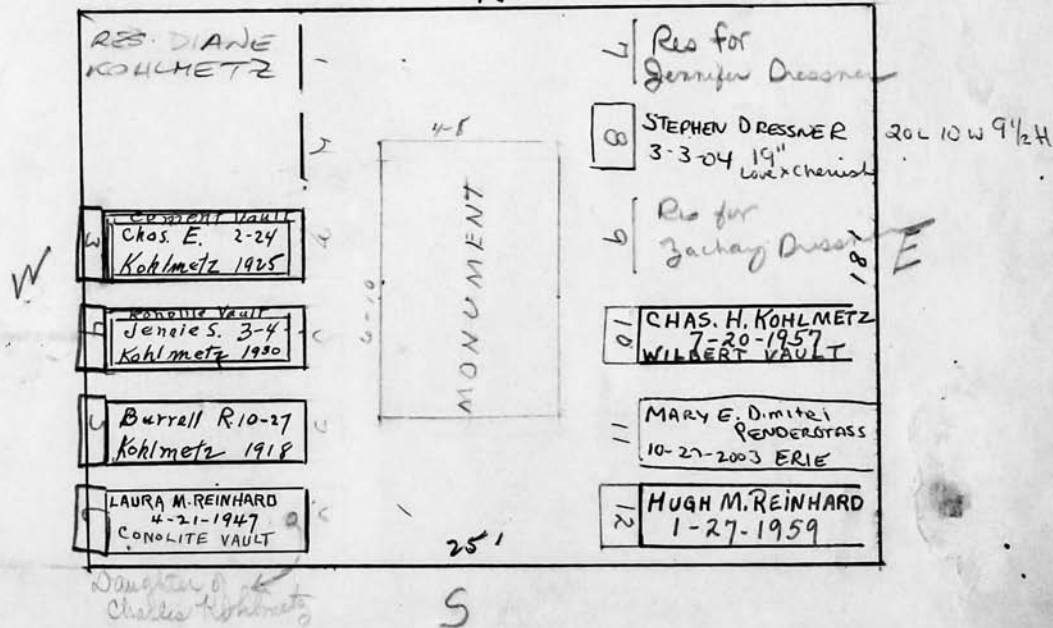 N
RES. DIANE
KOHLMETZ
1
2
3
Cement Vault
Chas. E. 2-24
Kohlmetz 1925
4
Vault
Jennie S. 3-4
Kohlmetz 1930
Burrell R. 10-27
Kohlmetz 1918
LAURA M. REINHARD
4-21-1947
CONOLITE VAULT
Daughter of
Charles Kohlmetz
W
4-8
6-10
MONUMENT
25'
S
7
Res for
Jennifer Dressner
8
STEPHEN DRESSNER
3-3-04 19"
Love x Cherish
20L 10W 9½H
9
Res for
Zachary Dressner
18'
E
10
CHAS. H. KOHLMETZ
7-20-1957
WILBERT VAULT
11
MARY E. Dimitri
PENDERGTASS
10-27-2003 ERIE
12
HUGH M. REINHARD
1-27-1959